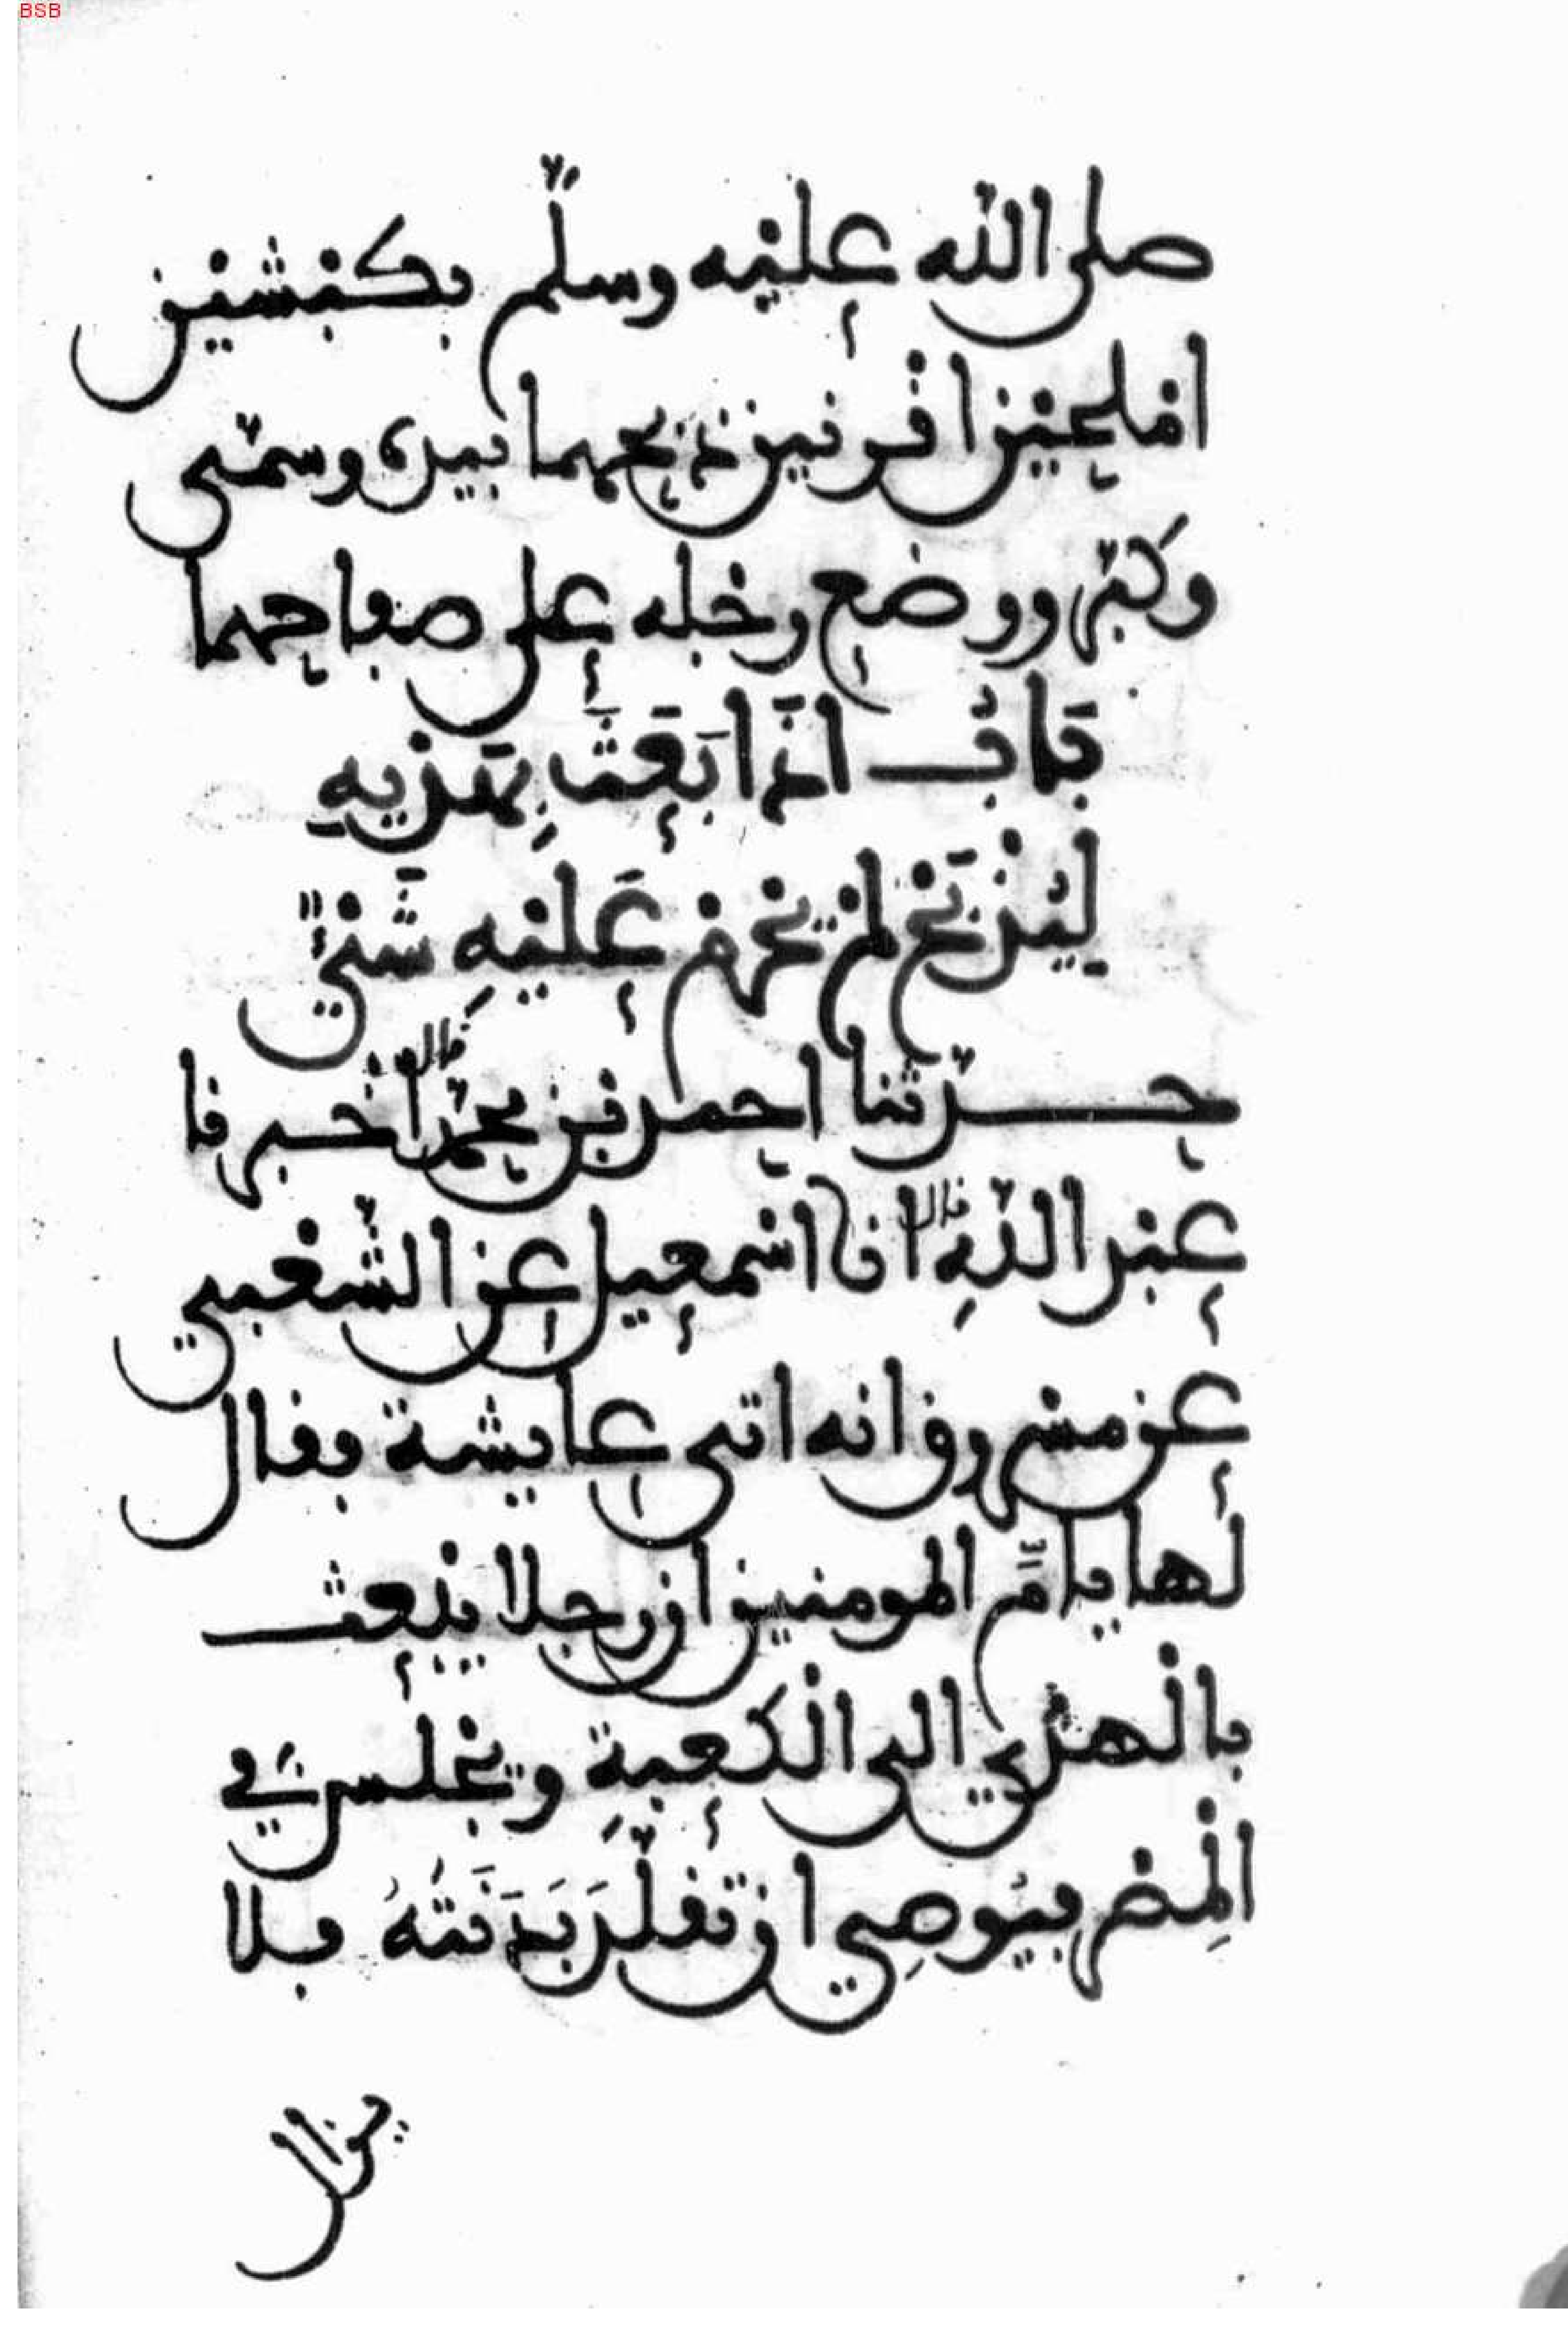 BSB
صلى الله عليه وسلم بكبشين
املحين اقرنين ذبحهما بيده وسمى
وكبر ووضع رجله على صفاحهما
بَابُ اذَا بَعَثَ بِهَدْيِهِ
لِيُذْبَحَ لمْ يَحْرُمْ عَلَيْهِ شَيْءٌ
حدّثنا احمد بن محمّد قال اخبرنا
عبْد اللّهِ قال انا اسْمعيل عن الشّعْبي
عن مسْروق انه اتى عايشة فقال
لها يا امَّ المومنين ان رجلا يبْعث
بالْهدْي الى الْكعبةِ ويجْلس في
الْمِصْر فيُوصِي ان تقلّدَ بَدَنَتُهُ فلا
يزال